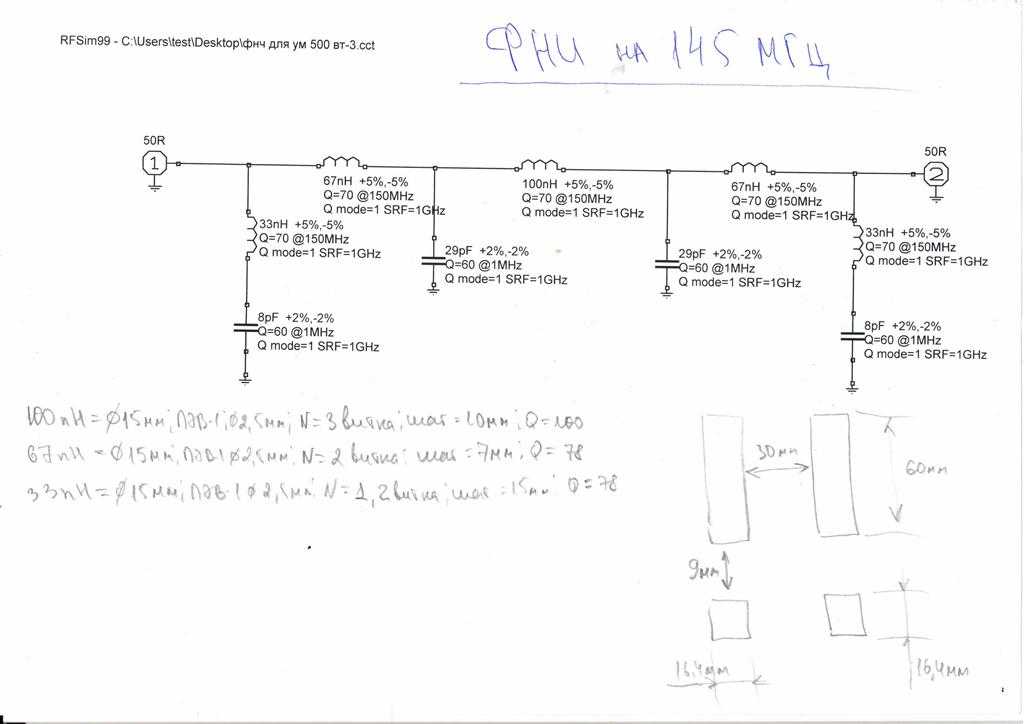 RFSim99 - C:\Users\test\Desktop\фнч для ум 500 вт-3.cct
ФНЧ на 145 МГц
50R
1
67nH +5%,-5%
Q=70 @150MHz
Q mode=1 SRF=1GHz
100nH +5%,-5%
Q=70 @150MHz
Q mode=1 SRF=1GHz
67nH +5%,-5%
Q=70 @150MHz
Q mode=1 SRF=1GHz
50R
2
33nH +5%,-5%
Q=70 @150MHz
Q mode=1 SRF=1GHz
29pF +2%,-2%
Q=60 @1MHz
Q mode=1 SRF=1GHz
29pF +2%,-2%
Q=60 @1MHz
Q mode=1 SRF=1GHz
33nH +5%,-5%
Q=70 @150MHz
Q mode=1 SRF=1GHz
8pF +2%,-2%
Q=60 @1MHz
Q mode=1 SRF=1GHz
8pF +2%,-2%
Q=60 @1MHz
Q mode=1 SRF=1GHz
100nH = Ø15мм; ПЭВ-1, Ø2,5мм; N=3 витка; шаг=10мм; Q=100
67nH = Ø15мм; ПЭВ-1 Ø2,5мм; N=2 витка; шаг=7мм; Q=78
33nH = Ø15мм; ПЭВ-1 Ø2,5мм; N=1,2 витка; шаг=15мм; Q=78
30мм
60мм
9мм
16,4мм
16,4мм